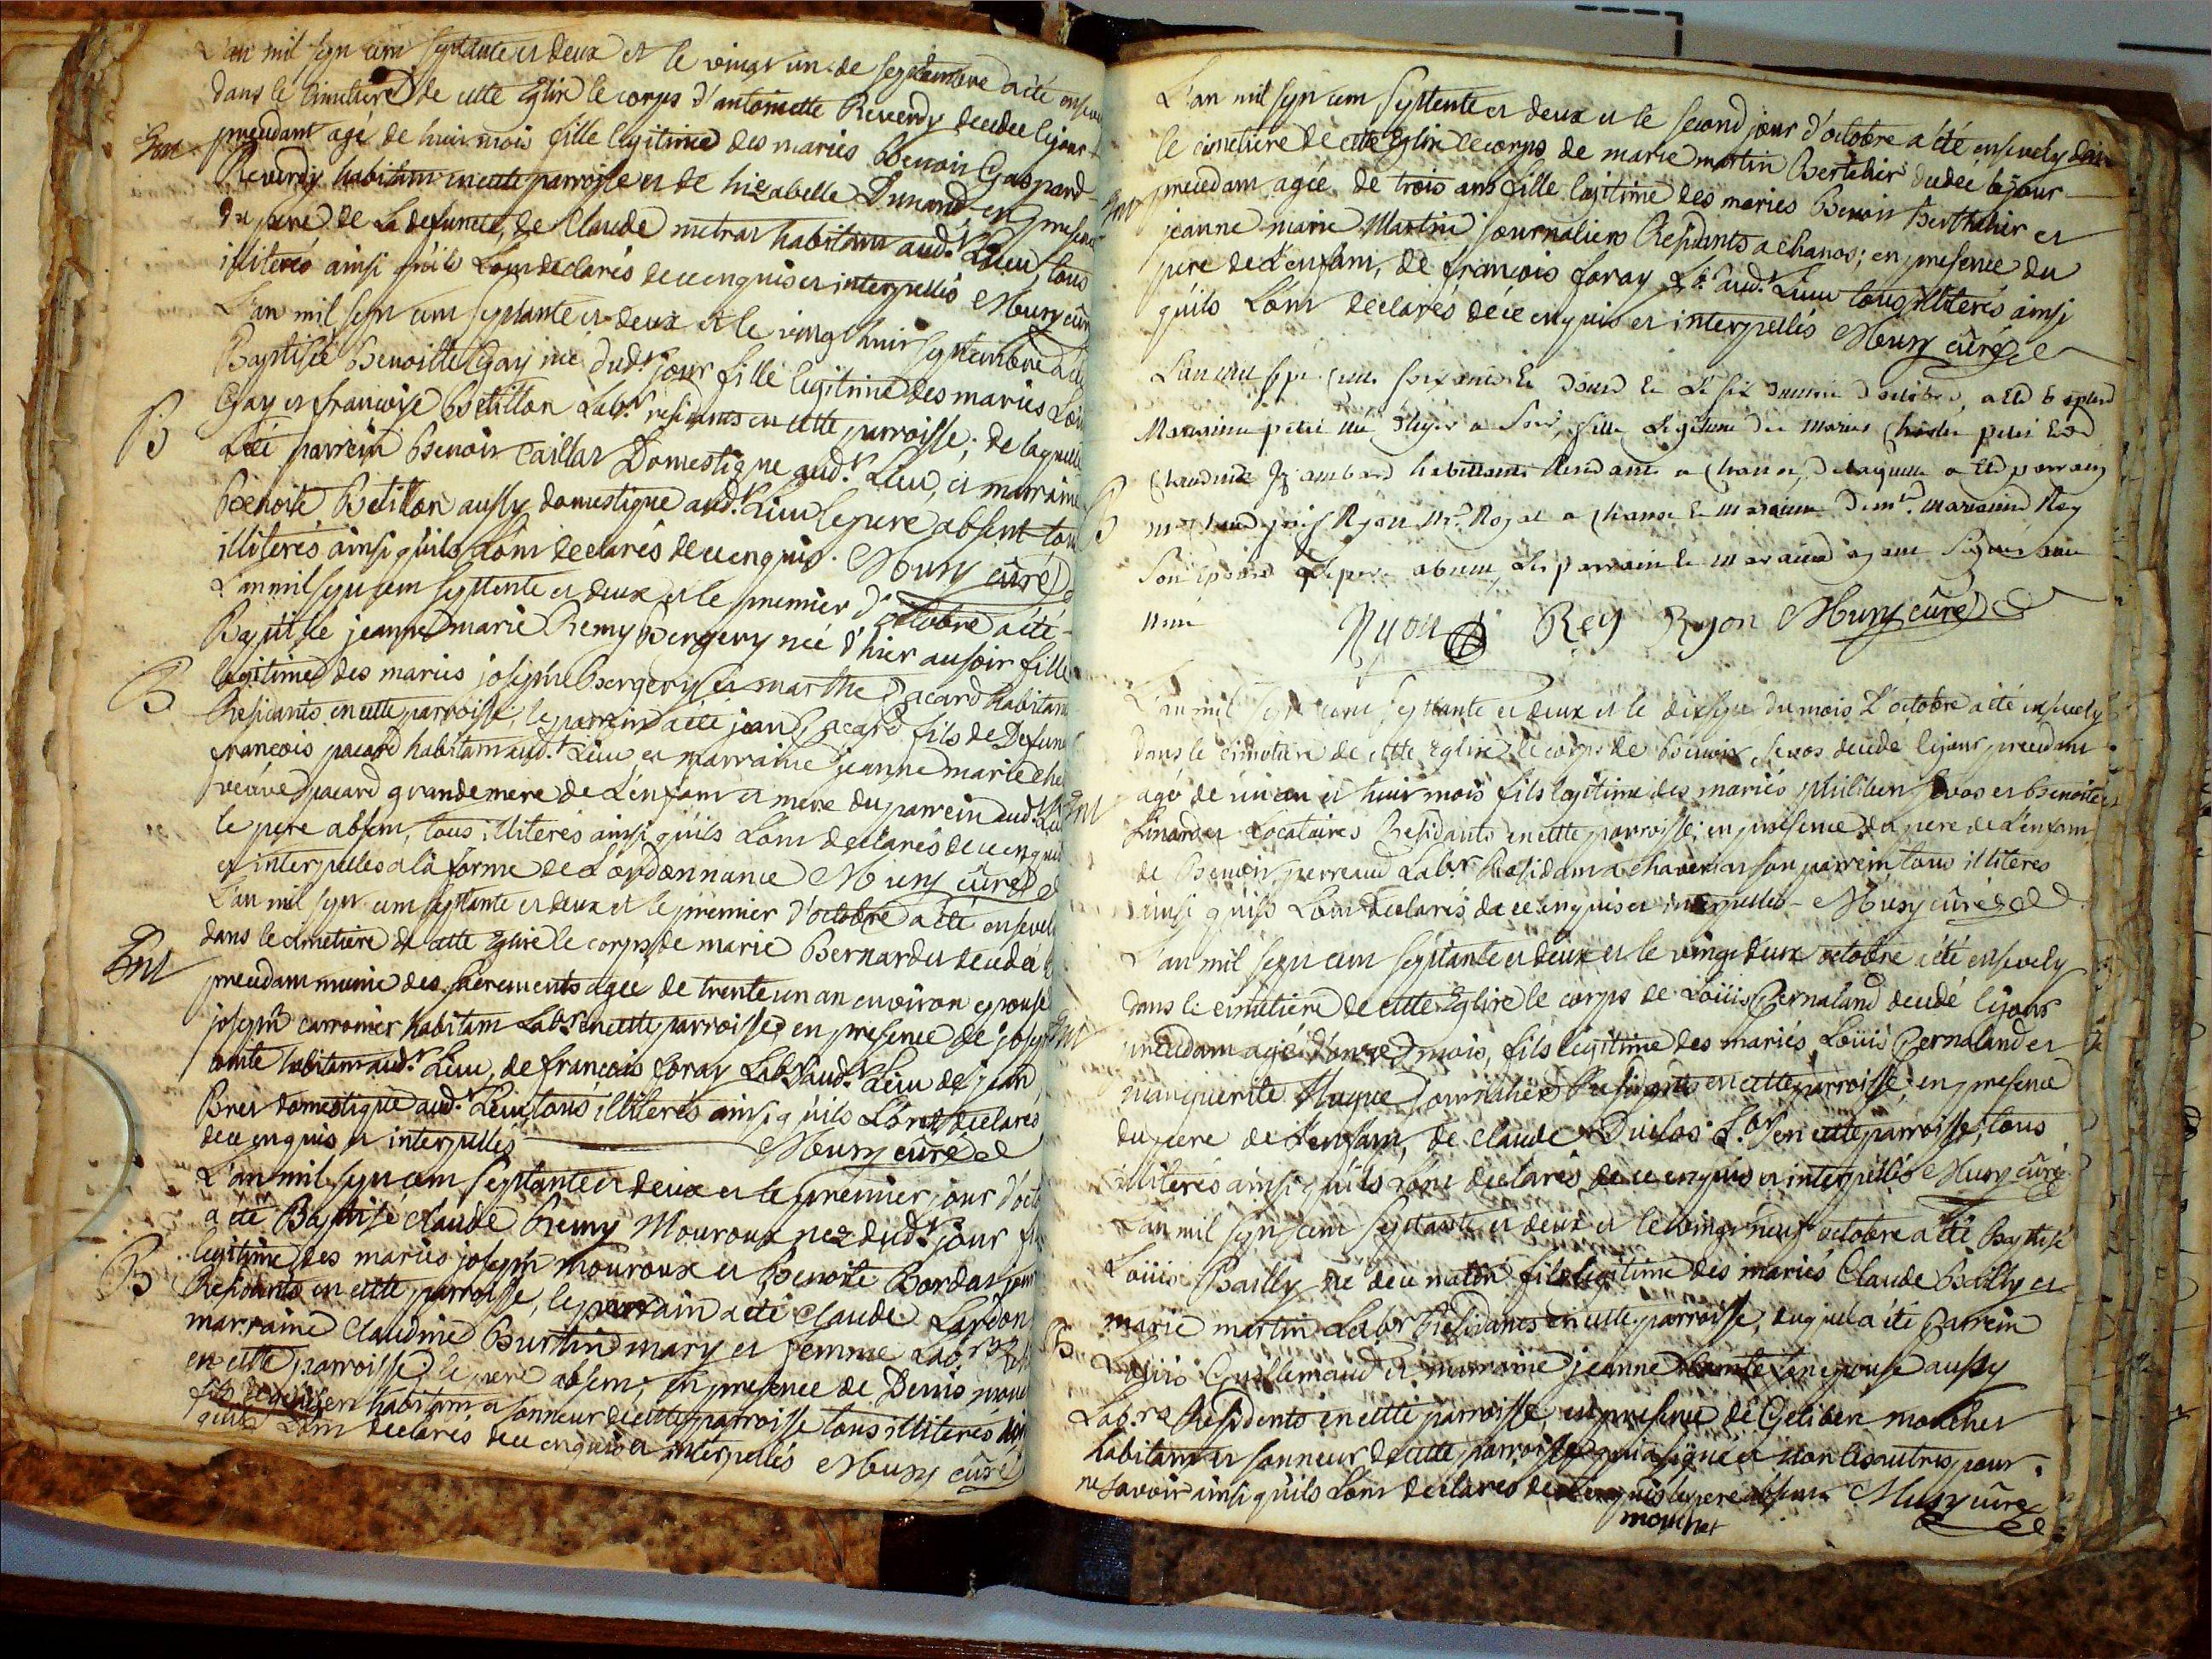 L'an mil sept cent septante et deux et le vingt un de septembre a été ensevely
dans le cimetiere de cette Eglise le corps d'antoinette Reverdy decedee le jour
precedant agé de huit mois fille legitime des mariés Benoit Gaspard
Ent
Reverdy habitant en cette parroisse et de hizabelle Dunand, en presence
du pere de La defuncte, de Claude metras habitant aud.t Lieu, tous
illiterés ainsi qu'ils L'ont declarés de ce enquis et interpellés Mury curé
L'an mil sept cent septante et deux et le vingt huit septembre a été
Baptisée Benoitte Gay née dud.t jour fille legitime des mariés Louis
Gay et francoise Betillon Lab.rs residants en cette parroisse; de laquelle
B
a été parrein Benoit Caillat Domestique aud.t Lieu, et marraine
Benoite Betillon aussy domestique aud.t Lieu le pere absent tous
illiterés ainsi qu'ils L'ont declarés de ce enquis. Mury curé
L'an mil sept cent septente et deux et le premier d'octobre a été
Baptisée jeanne marie Remy Bergery née d'hier au soir fille
legitime des mariés joseph Bergery et marthe pacard habitants
B
Residants en cette parroisse, le parrein a été jean pacard fils de Defunt
francois pacard habitant aud.t Lieu et marraine jeanne marie
veuve pacard grande mere de L'enfant et mere du parrein aud.t Lieu
le pere absent, tous illiterés ainsi qu'ils L'ont declarés de ce enquis
et interpellés a la forme de L'ordonnance Mury curé
L'an mil sept cent septante et deux et le premier d'octobre a été ensevely
dans le cimetiere de cette Eglise le corps de marie Bernardet decedée
Ent
precedant munie des sacrements agée de trente un an environ epouse
joseph carronier habitant Lab.r en cette parroisse; en presence de joseph
habitant aud.t Lieu, de francois foray Lab.r aud.t Lieu de jean
Bret domestique aud.t Lieu, tous illiterés ainsi qu'ils L'ont declarés
de ce enquis et interpellés Mury curé
L'an mil sept cent septante et deux et le premier jour d'octobre
a été Baptisé claude Remy Mouroux nez dud.t jour fils
legitime des mariés joseph mouroux et Benoite Bordat
B
Residants en cette parroisse, le parrain a été claude Lardon
marraine Claudine Burtin mary et femme Lab.rs
en cette parroisse, le pere absent; en presence de Denis
habitant et sonneur de cette parroisse tous illiterés ainsi
qu'ils L'ont declarés de ce enquis et interpellés Mury curé
L'an mil sept cent septente et deux et le second jour d'octobre a été ensevely dans
le cimetiere de cette Eglise le corps de marie martin Berthelier decedée le jour
Ent
precedant agée de trois ans fille legitime des mariés Benoit Berthelier et
jeanne marie Martin journaliers Residants a chanos; en presence du
pere de L'enfant, de francois foray L.r aud.t Lieu tous illiterés ainsi
qu'ils L'ont declarés de ce enquis et interpellés Mury curé
L'an mil sept cent septante et deux et Le six octobre, a été baptisé
petit née d'hyer a soir, fille Legitime des mariés petit et de
Claudine habittants Residants a chanos, de laquelle a été parrain
B
Ryon N.re Royal a chanos et maraine Dem.lle marianne Rey
Son epouse Le pere absent, Les parrain et maraine ayant signés avec
nous
Ryon Rey Ryon Mury curé
L'an mil sept cent septante et deux et le dix sept du mois d'octobre a été ensevely
dans le cimetiere de cette Eglise le corps de Benoit sevos decedé le jour precedant
agé de un an et huit mois fils legitime des mariés philibert sevos et Benoite
Ent
Linardet Locataires Residants en cette parroisse; en presence du pere de L'enfant
de Benoit perreaud Lab.r Residant a chaveriat son parrein tous illiterés
ainsi qu'ils L'ont declarés de ce enquis et interpellés Mury curé
L'an mil sept cent septante et deux et le vingt deux octobre a été ensevely
dans le cimetiere de cette Eglise le corps de Loüis Pernaland decedé le jour
Ent
precedant agé d'onze mois, fils legitime des mariés Loüis Pernaland et
marguerite Huque journalier Residants en cette parroisse; en presence
du pere de L'enfant, de claude Duclos L.br en cette parroisse, tous
illiterés ainsi qu'ils L'ont declarés de ce enquis et interpellés Mury curé
L'an mil sept cent septante et deux et le vingt neuf octobre a été Baptisé
Loüis Bailly né de ce matin fils legitime des mariés Claude Bailly et
marie martin Lab.rs Residants en cette parroisse, duquel a été Parrein
B
Loüis Guillemaud et marraine jeanne son epouse aussy
Lab.rs Residents en cette parroisse; en presence de Geliber mouchet
habitant et sonneur de cette parroisse qui a signé et non les autres pour
ne savoir ainsi qu'ils L'ont declarés de ce enquis le pere absent Mury curé
mouchet